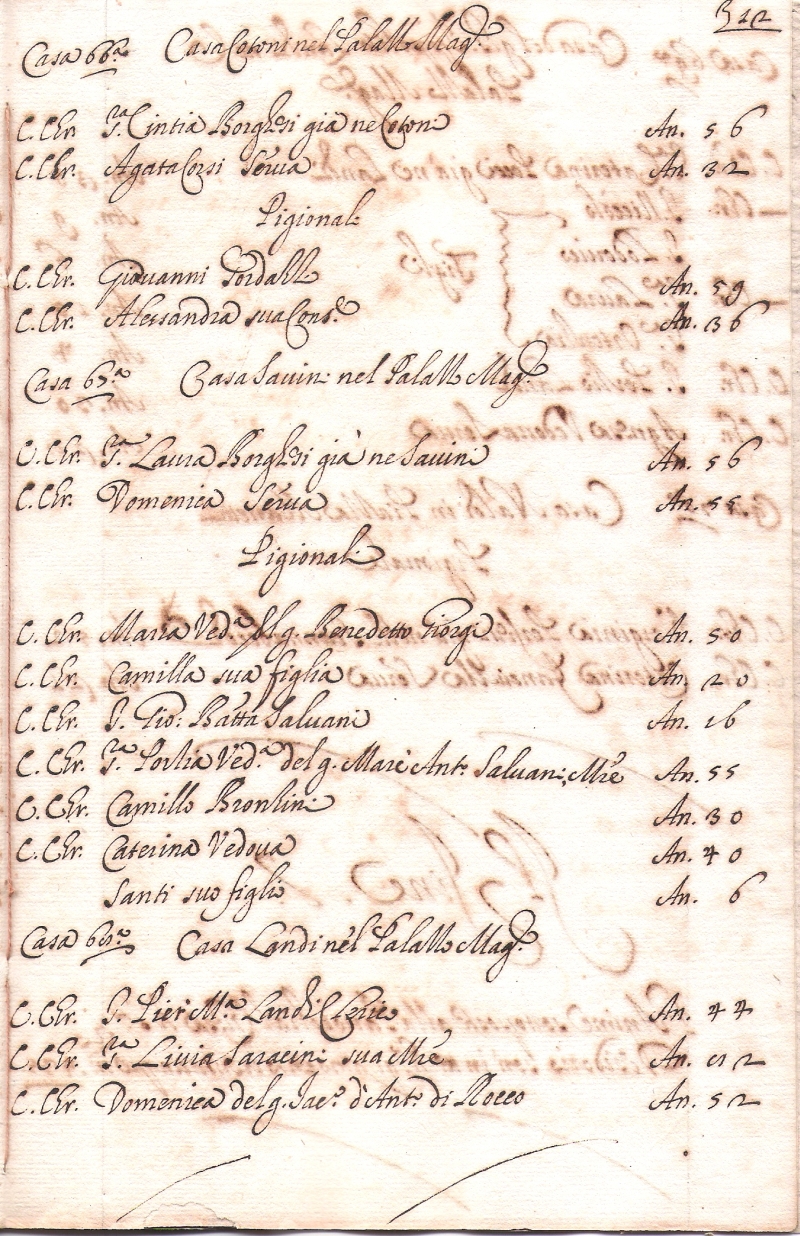 Casa 66.a Casa Cotoni nel Palazzo Mag.o
C. Chr. S.ra Cintia Borghesi già ne Cotoni An. 56
C. Chr. Agata Corsi Serva An. 32
Pigionali
C. Chr. Giovanni An. 59
C. Chr. Alessandra sua Cons.e An. 36
Casa 67.a Casa Savini nel Palazzo Mag.o
C. Chr. S.ra Laura Borghesi già ne Savini An. 56
C. Chr. Domenica Serva An. 55
Pigionali
C. Chr. Maria Ved.a del q. Benedetto Giorgi An. 50
C. Chr. Camilla sua figlia An. 20
C. Chr. S. Gio: Batta Salvani An. 16
C. Chr. S.ra Portia Ved.a del q. Marc'Ant.o Salvani, Mre An. 55
C. Chr. Camillo An. 30
C. Chr. Caterina Vedova An. 40
Santi suo figlio An. 6
Casa 68.a Casa Landi nel Palazzo Mag.o
C. Chr. S. Pier M.a Landi An. 44
C. Chr. S.ra Livia Saracini sua Mre An. 82
C. Chr. Domenica del q. Jac.o d'Ant.o di Rocco An. 52